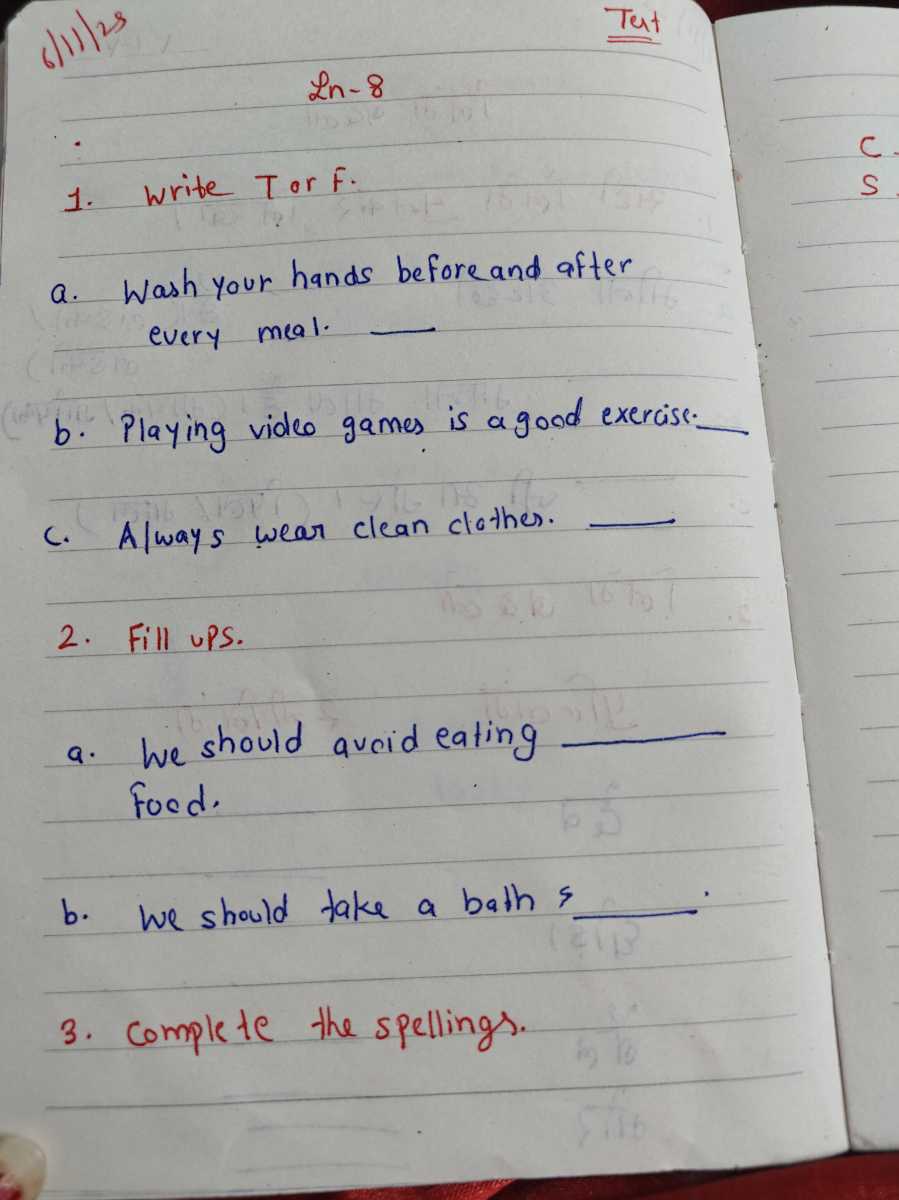 6/11/25
Test
Ln-8
1. Write T or F.
a. Wash your hands before and after
every meal. ____
b. Playing video games is a good exercise. ____
c. Always wear clean clothes. ____
2. Fill ups.
a. We should avoid eating ____
food.
b. We should take a bath ____.
3. Complete the spellings.
C
S